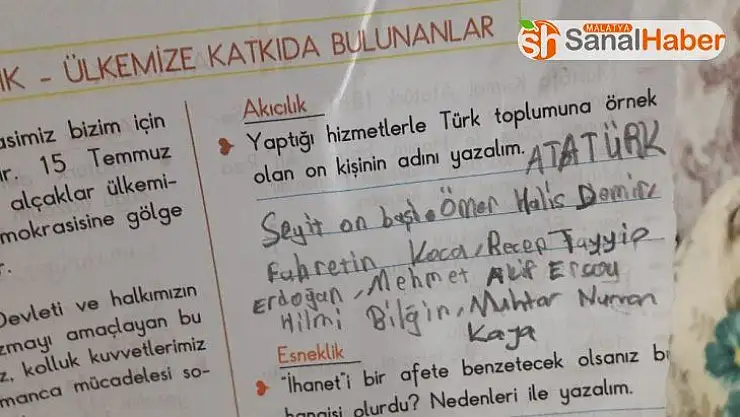 MALATYA
SH SanalHaber
IK - ÜLKEMİZE KATKIDA BULUNANLAR
asimiz bizim için
r. 15 Temmuz
alçaklar ülkemi-
mokrasisine gölge
r.
Devleti ve halkımızın
zmayı amaçlayan bu
z, kolluk kuvvetlerimiz
manca mücadelesi so-
Akıcılık
Yaptığı hizmetlerle Türk toplumuna örnek
olan on kişinin adını yazalım. ATATÜRK
Seyit on başı Ömer Halis Demir
Fahretin Koca, Recep Tayyip
Erdoğan, Mehmet Akif Ersoy
Hilmi Bilğin, Muhtar Nurran
Kaya
Esneklik
"İhanet"i bir afete benzetecek olsanız bu
hangisi olurdu? Nedenleri ile yazalım.